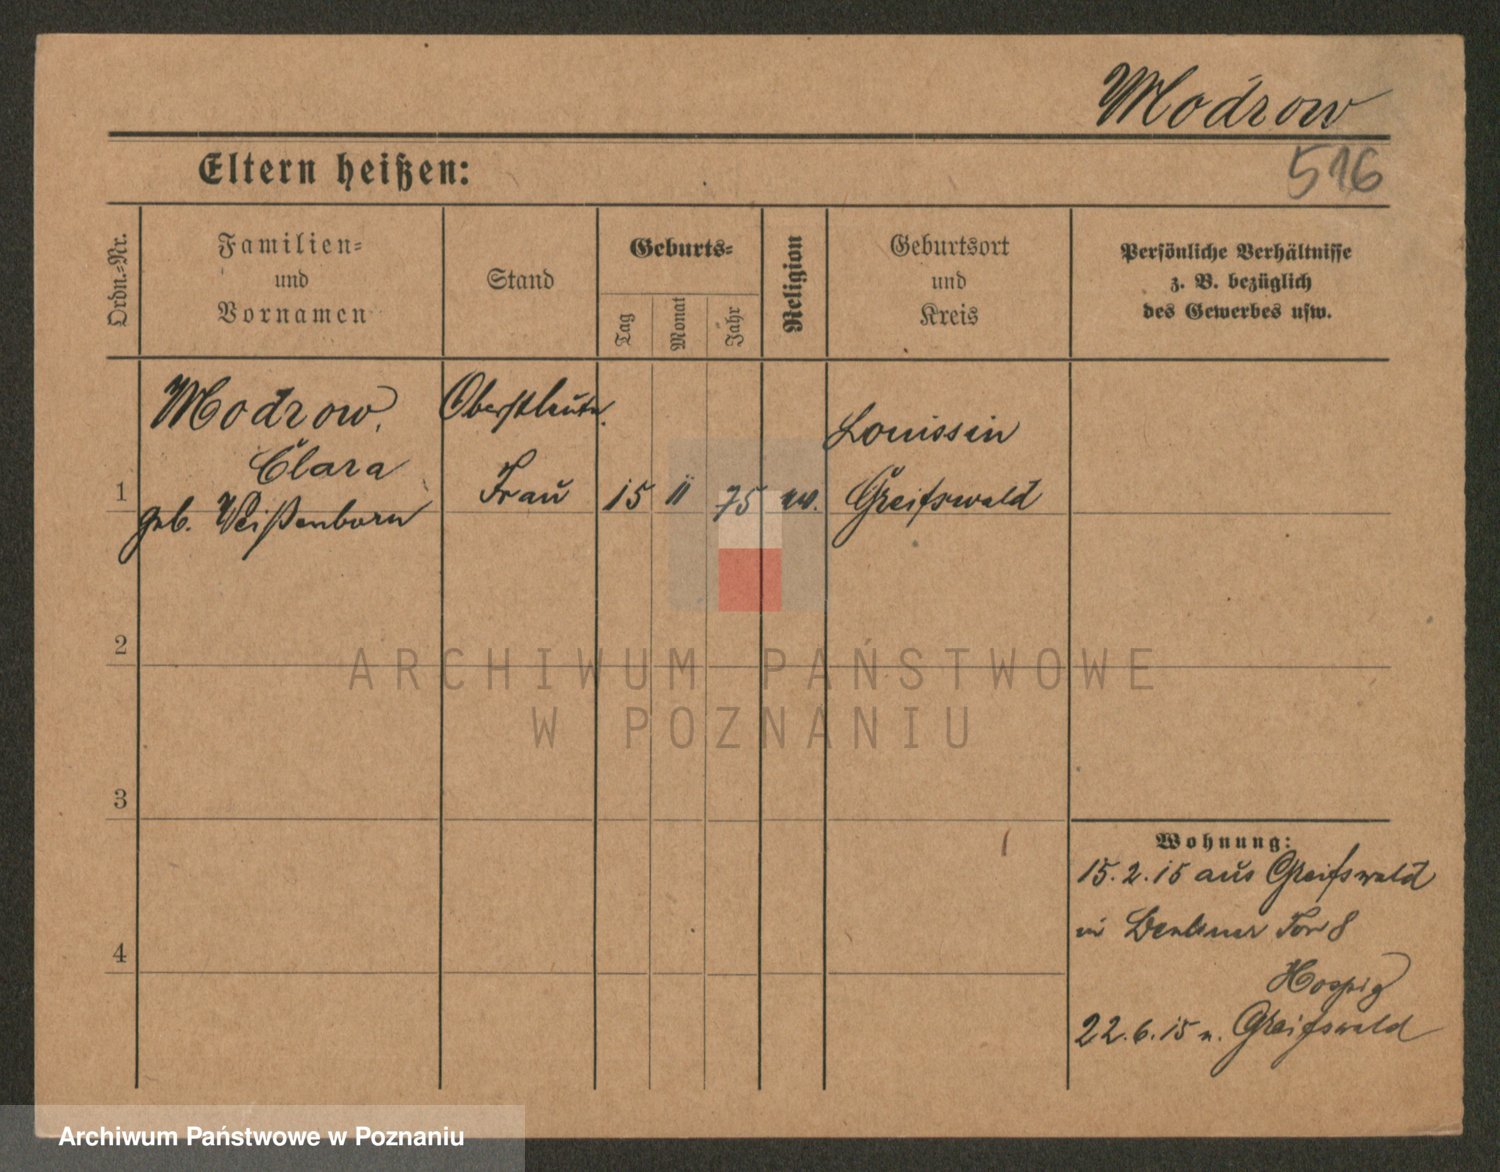 Modrow
516
Eltern heißen:
Ordn.-Nr.
Familien-
und
Vornamen
Stand
Geburts-
Tag
Monat
Jahr
Religion
Geburtsort
und
Kreis
Persönliche Verhältnisse
z. B. bezüglich
des Gewerbes usw.
Modrow, Oberstleutn.
Clara Louissin
1 Frau 15 II 75 ev. Greifswald
geb. Weißenborn
2
ARCHIWUM PAŃSTWOWE
W POZNANIU
3
Wohnung:
15.2.15 aus Greifswald
in Berliner Tor 8
4
Hospiz
22.6.15 n. Greifswald
Archiwum Państwowe w Poznaniu